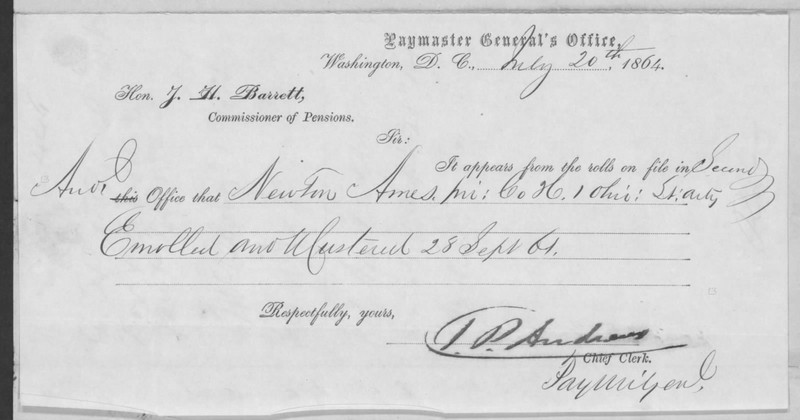 Paymaster General's Office,
Washington, D. C., July 20th, 1864.
Hon. J. H. Barrett,
Commissioner of Pensions.
Sir:
It appears from the rolls on file in Second
Aud. this Office that Newton Ames. pri: Co H. 1 Ohio: Lt: Arty
Enrolled and Mustered 28 Sept 61.
Respectfully, yours,
T. P. Andrews
Chief Clerk.
Paym: Genl.